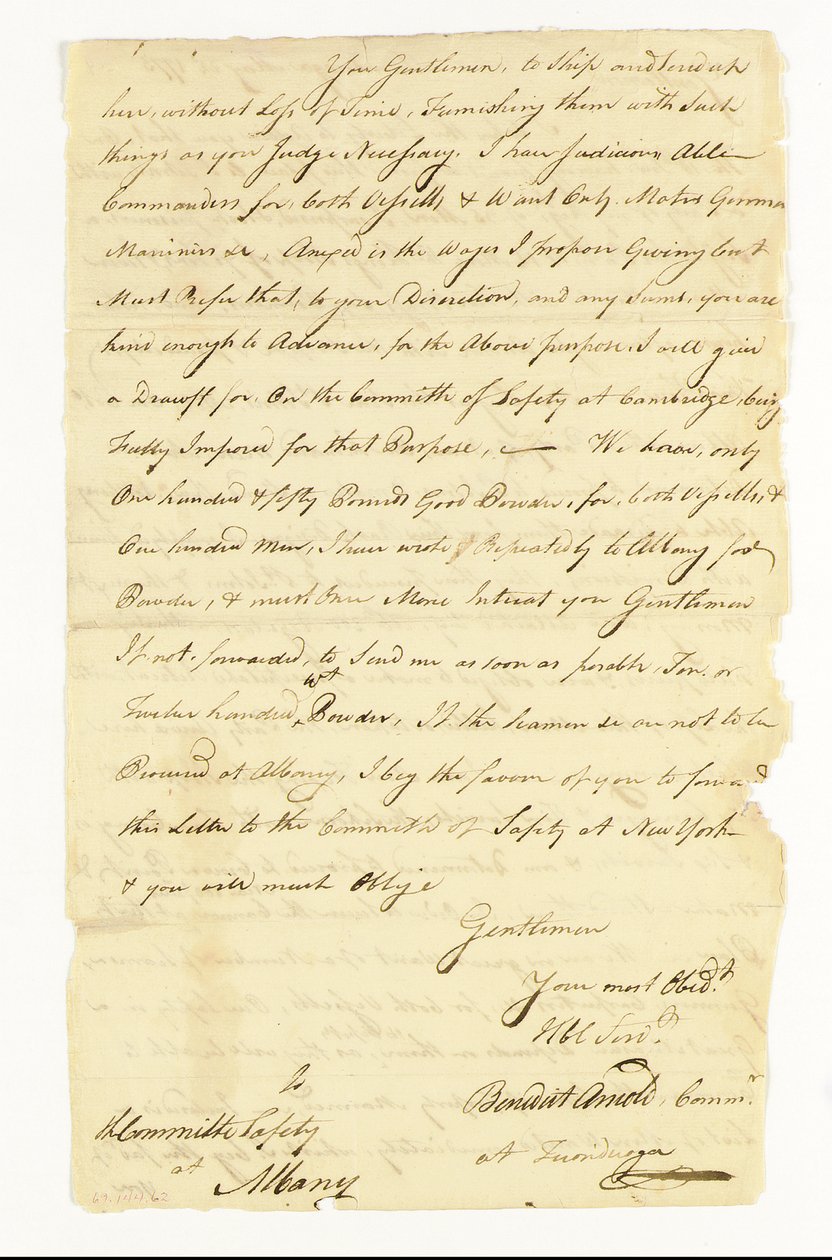 You Gentlemen, to Ship and Send up
here, without Loss of Time, Furnishing them with Such
things as you Judge Necessary. I have Judicious Able
Commanders for, both Vessells & Want Only. Mates Gunners
Mariners &c, Anexed is the Wages I propose Giveing but
Must Refer that, to your Discretion, and any Sums, you are
kind enough to Advance, for the Above purpose. I will give
a Drawft for. On the Committe of Safety at Cambridge, being
Fully Impored for that Purpose, — We have, only
One hundred & fifty Pounds Good Powder, for, both Vessells, &
One hundred Men, I have wrote Repeatedly to Albany for
Powder, & must Once More Intreat you Gentlemen
If not. forwarded, to Send me as soon as posable, Ten. or
wt
Twelve hundred Powder, If the Seamen &c are not to be
Procured at Albany, I beg the favour of you to forward
this Letter to the Committe of Safety at New York
& you will much Oblige
Gentlemen
Your most Obedt.
Hble Servt.
Benedict Arnold, Commr.
at Ticonderoga
To
the Committe Safety
at
Albany
69.144.62